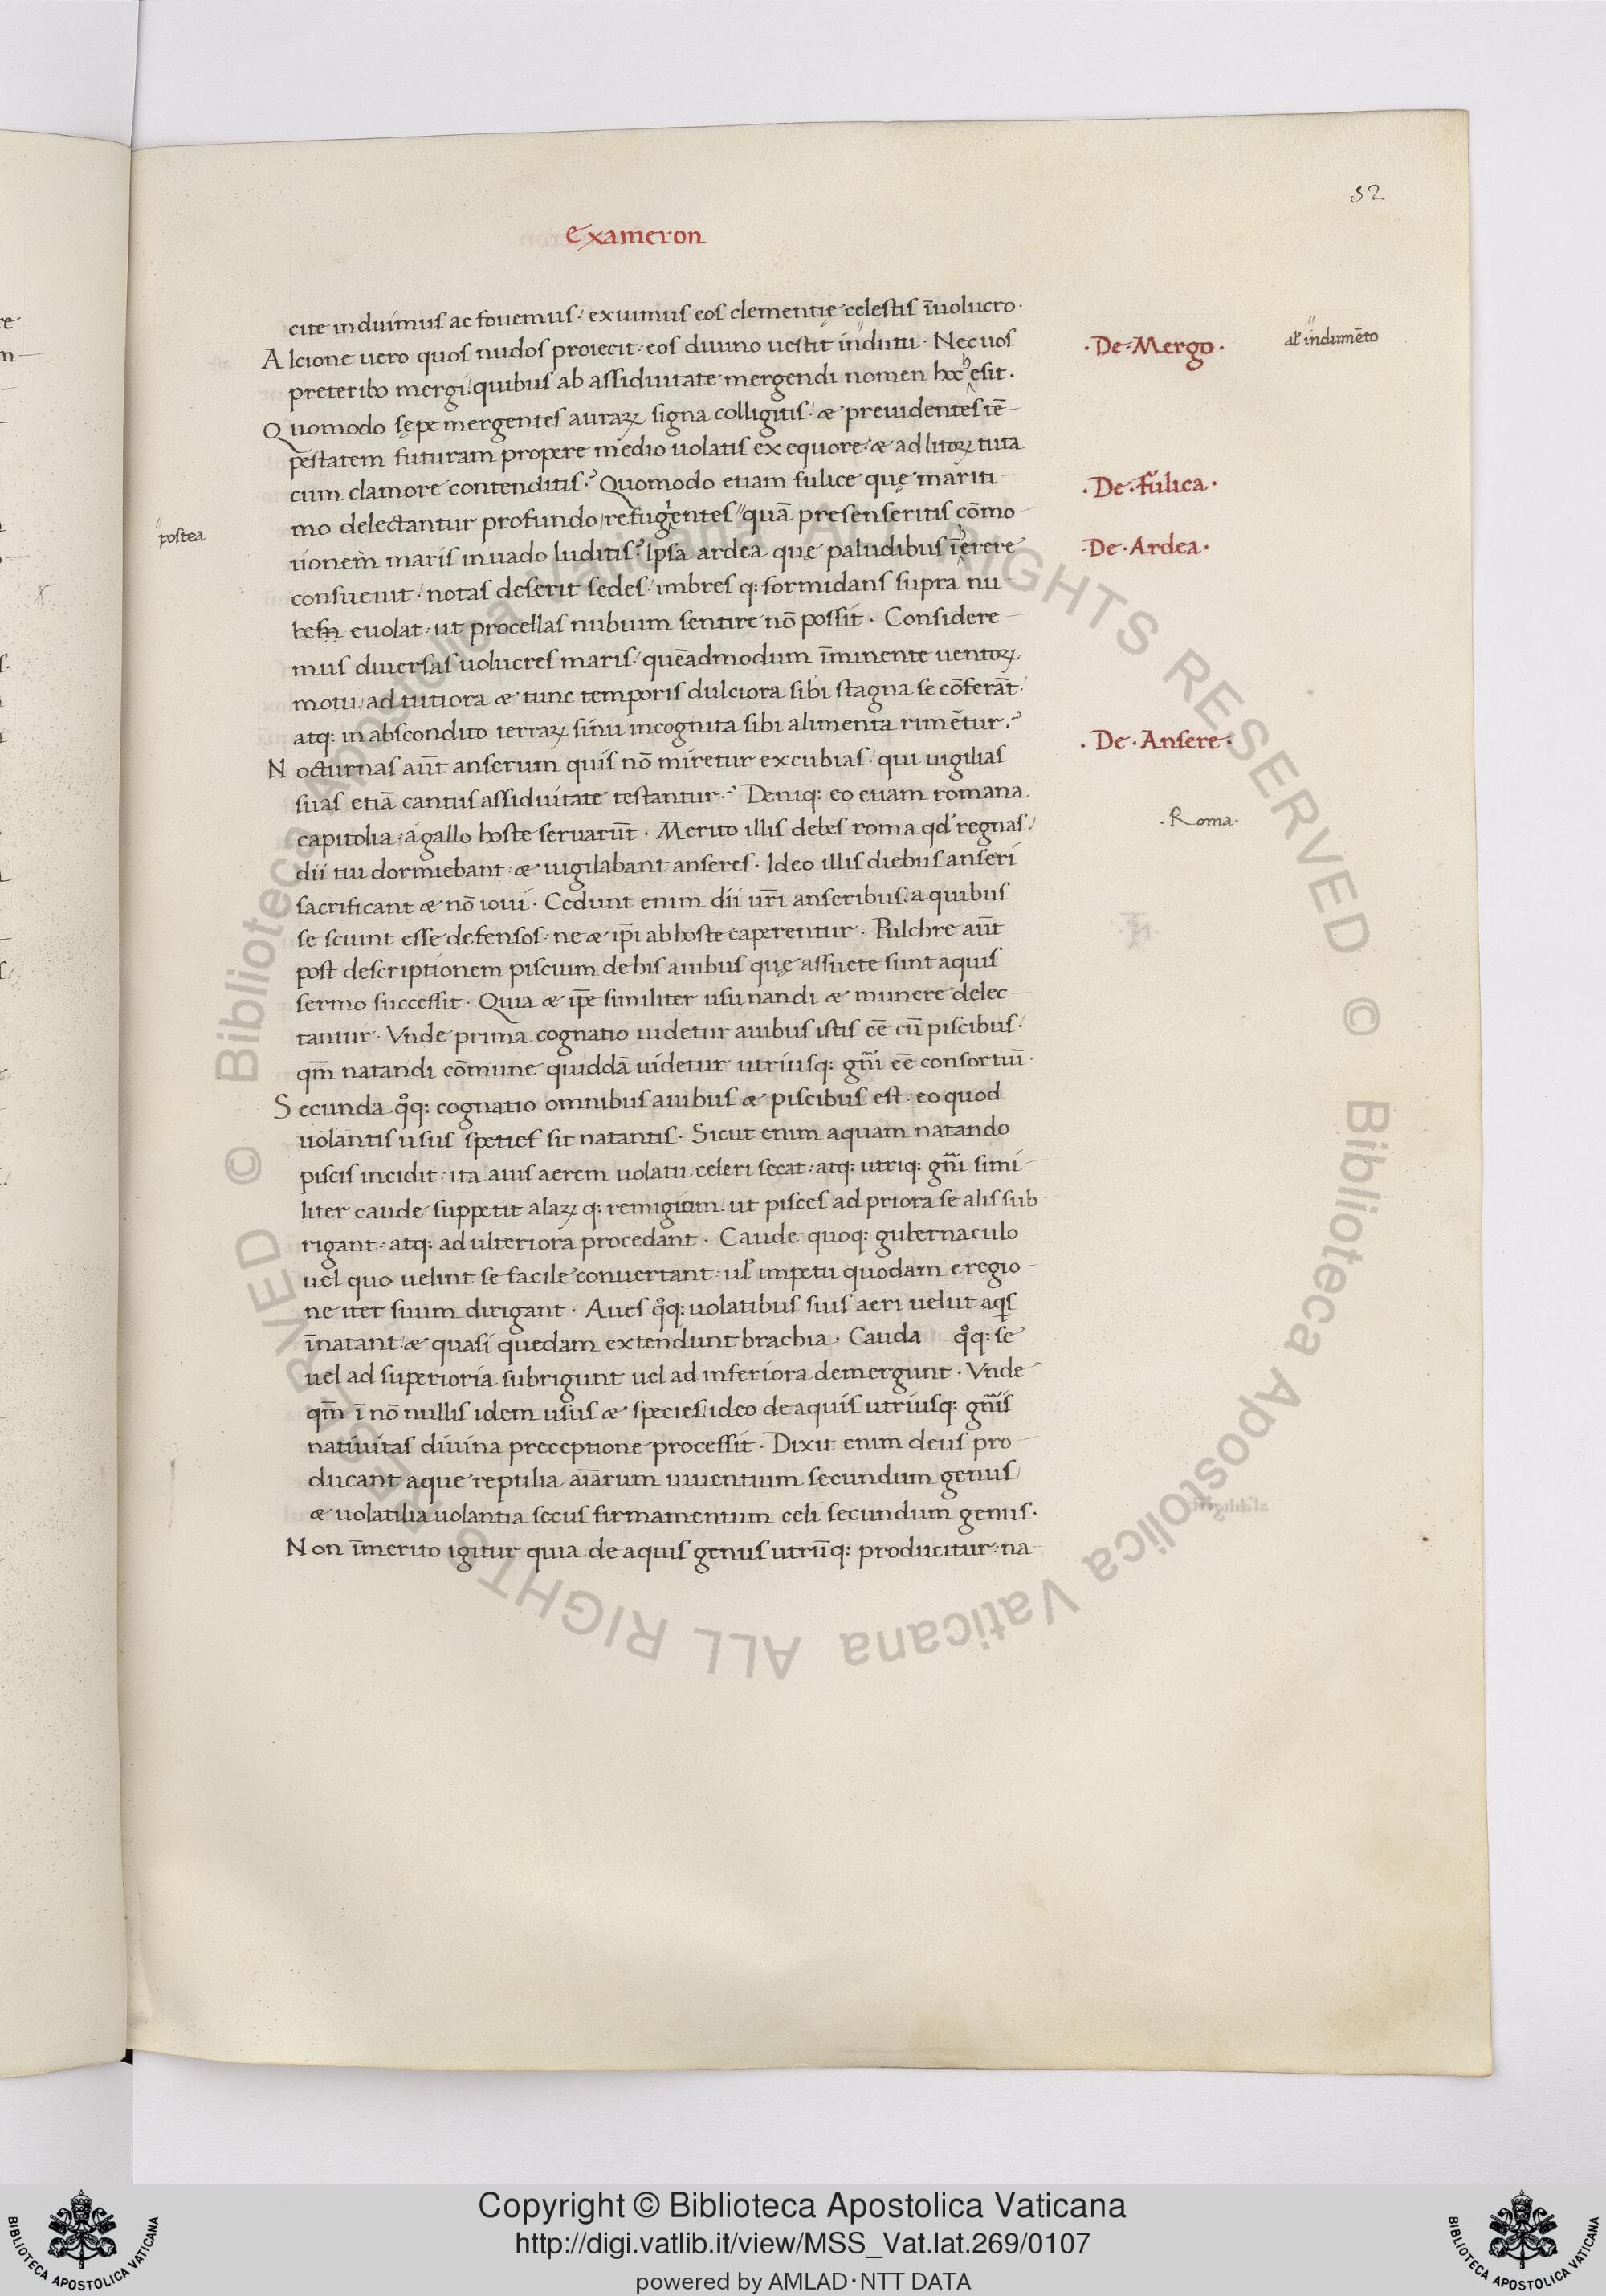 52
Exameron
cite induimus ac fouemus / exuimus eos clementię celestis īuolucro.
Alcione uero quos nudos proiecit: eos diuino uestit indutu. Nec uos
preteribo mergi: quibus ab assiduitate mergendi nomen hoc hesit.
Quomodo sępe mergentes auraꝝ signa colligitis: & preuidentes tē-
pestatem futuram propere medio uolatis ex equore: & ad litoꝝ tuta
cum clamore contenditis? Quomodo etiam fulice quę mariti-
mo delectantur profundo / refugientes quā presenseritis cōmo-
tionem maris in uado luditis? Ipsa ardea quę paludibus īherere
consueuit / notas deserit sedes / imbres q: formidans supra nu
bem euolat: ut procellas nubium sentire nō possit. Considere-
mus diuersas uolucres maris / quēadmodum īminente uentoꝝ
motu / ad tutiora & tunc temporis dulciora sibi stagna se cōferāt:
atq: in abscondito terraꝝ sinu incognita sibi alimenta rimētur?
Nocturnas aūt anserum quis nō miretur excubias: qui uigilias
suas etiā cantus assiduitate testantur? Deniq: eo etiam romana
capitolia: a gallo hoste seruarūt. Merito illis debes roma qđ regnas /
dii tui dormiebant: & uigilabant anseres. Ideo illis diebus anseri
sacrificant & nō ioui. Cedunt enim dii ur̄i anseribus / a quibus
se sciunt esse defensos: ne & ip̄i ab hoste caperentur. Pulchre aūt
post descriptionem piscium de his auibus quę assuete sunt aquis
sermo successit. Quia & ip̄e similiter usu nandi & munere delec-
tantur. Vnde prima cognatio uidetur auibus istis eē cū piscibus:
qm̄ natandi cōmune quiddā uidetur utriusq: gn̄i eē consortiū.
Secunda qͦq: cognatio omnibus auibus & piscibus est: eo quod
uolantis usus speties sit natantis. Sicut enim aquam natando
piscis incidit: ita auis aerem uolatu celeri secat: atq: utriq: gn̄i simi-
liter caude suppetit alaꝝ q: remigium / ut pisces ad priora se alis sub-
rigant: atq: ad ulteriora procedant. Caude quoq: gubernaculo
uel quo uelint se facile conuertant: ul̄ impetu quodam e regio-
ne iter suum dirigant. Aues qͦq: uolatibus suis aeri uelut aqs
īnatant: & quasi quedam extendunt brachia. Cauda qͦq: se
uel ad superioria subrigunt uel ad inferiora demergunt. Vnde
qm̄ ī nō nullis idem usus & species / ideo de aquis utriusq: gn̄is
natiuitas diuina preceptione processit. Dixit enim deus pro-
ducant aque reptilia aīarum uiuentium secundum genus /
& uolatilia uolantia secus firmamentum celi secundum genus.
Non īmerito igitur quia de aquis genus utrūq: producitur: na-
.De.Mergo.
al̄ indumēto
.De.fulica.
postea
.De.Ardea.
.De.Ansere.
.Roma.
© Biblioteca Apostolica Vaticana ALL RIGHTS RESERVED © Biblioteca Apostolica Vaticana ALL RIGHTS RESERVED
Copyright © Biblioteca Apostolica Vaticana
http://digi.vatlib.it/view/MSS_Vat.lat.269/0107
powered by AMLAD·NTT DATA
BIBLIOTECA APOSTOLICA VATICANA
BIBLIOTECA APOSTOLICA VATICANA